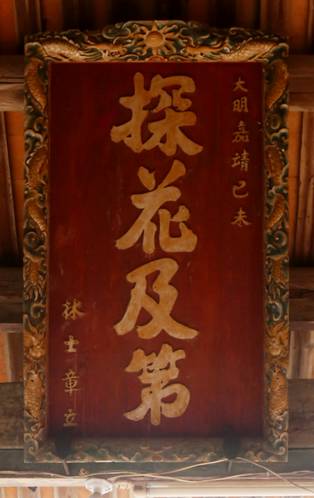 大明嘉靖己未
探花及第
林士章立